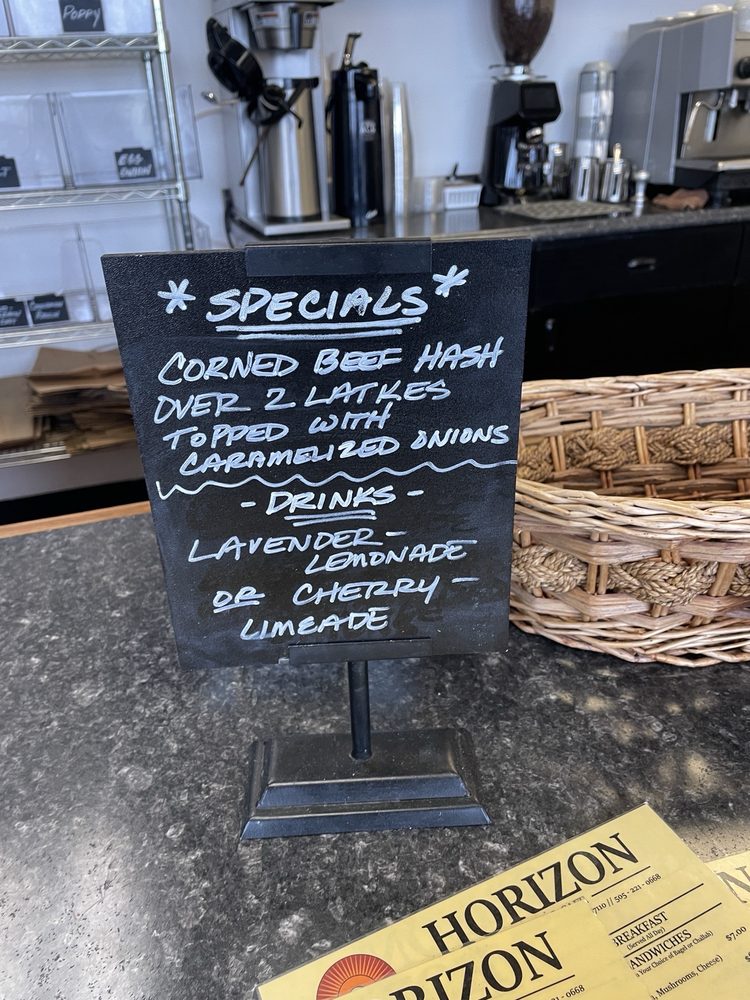 POPPY
EGG
ONION
* SPECIALS *
CORNED BEEF HASH
OVER 2 LATKES
TOPPED WITH
CARAMELIZED ONIONS
- DRINKS -
LAVENDER-
LEMONADE
OR CHERRY-
LIMEADE
HORIZON
7110 // 505 - 221 - 0668
BREAKFAST
(Served All Day)
ANDWICHES
Your Choice of Bagel or Challah)
$7.00
Mushrooms, Cheese)
RIZON
- 0668